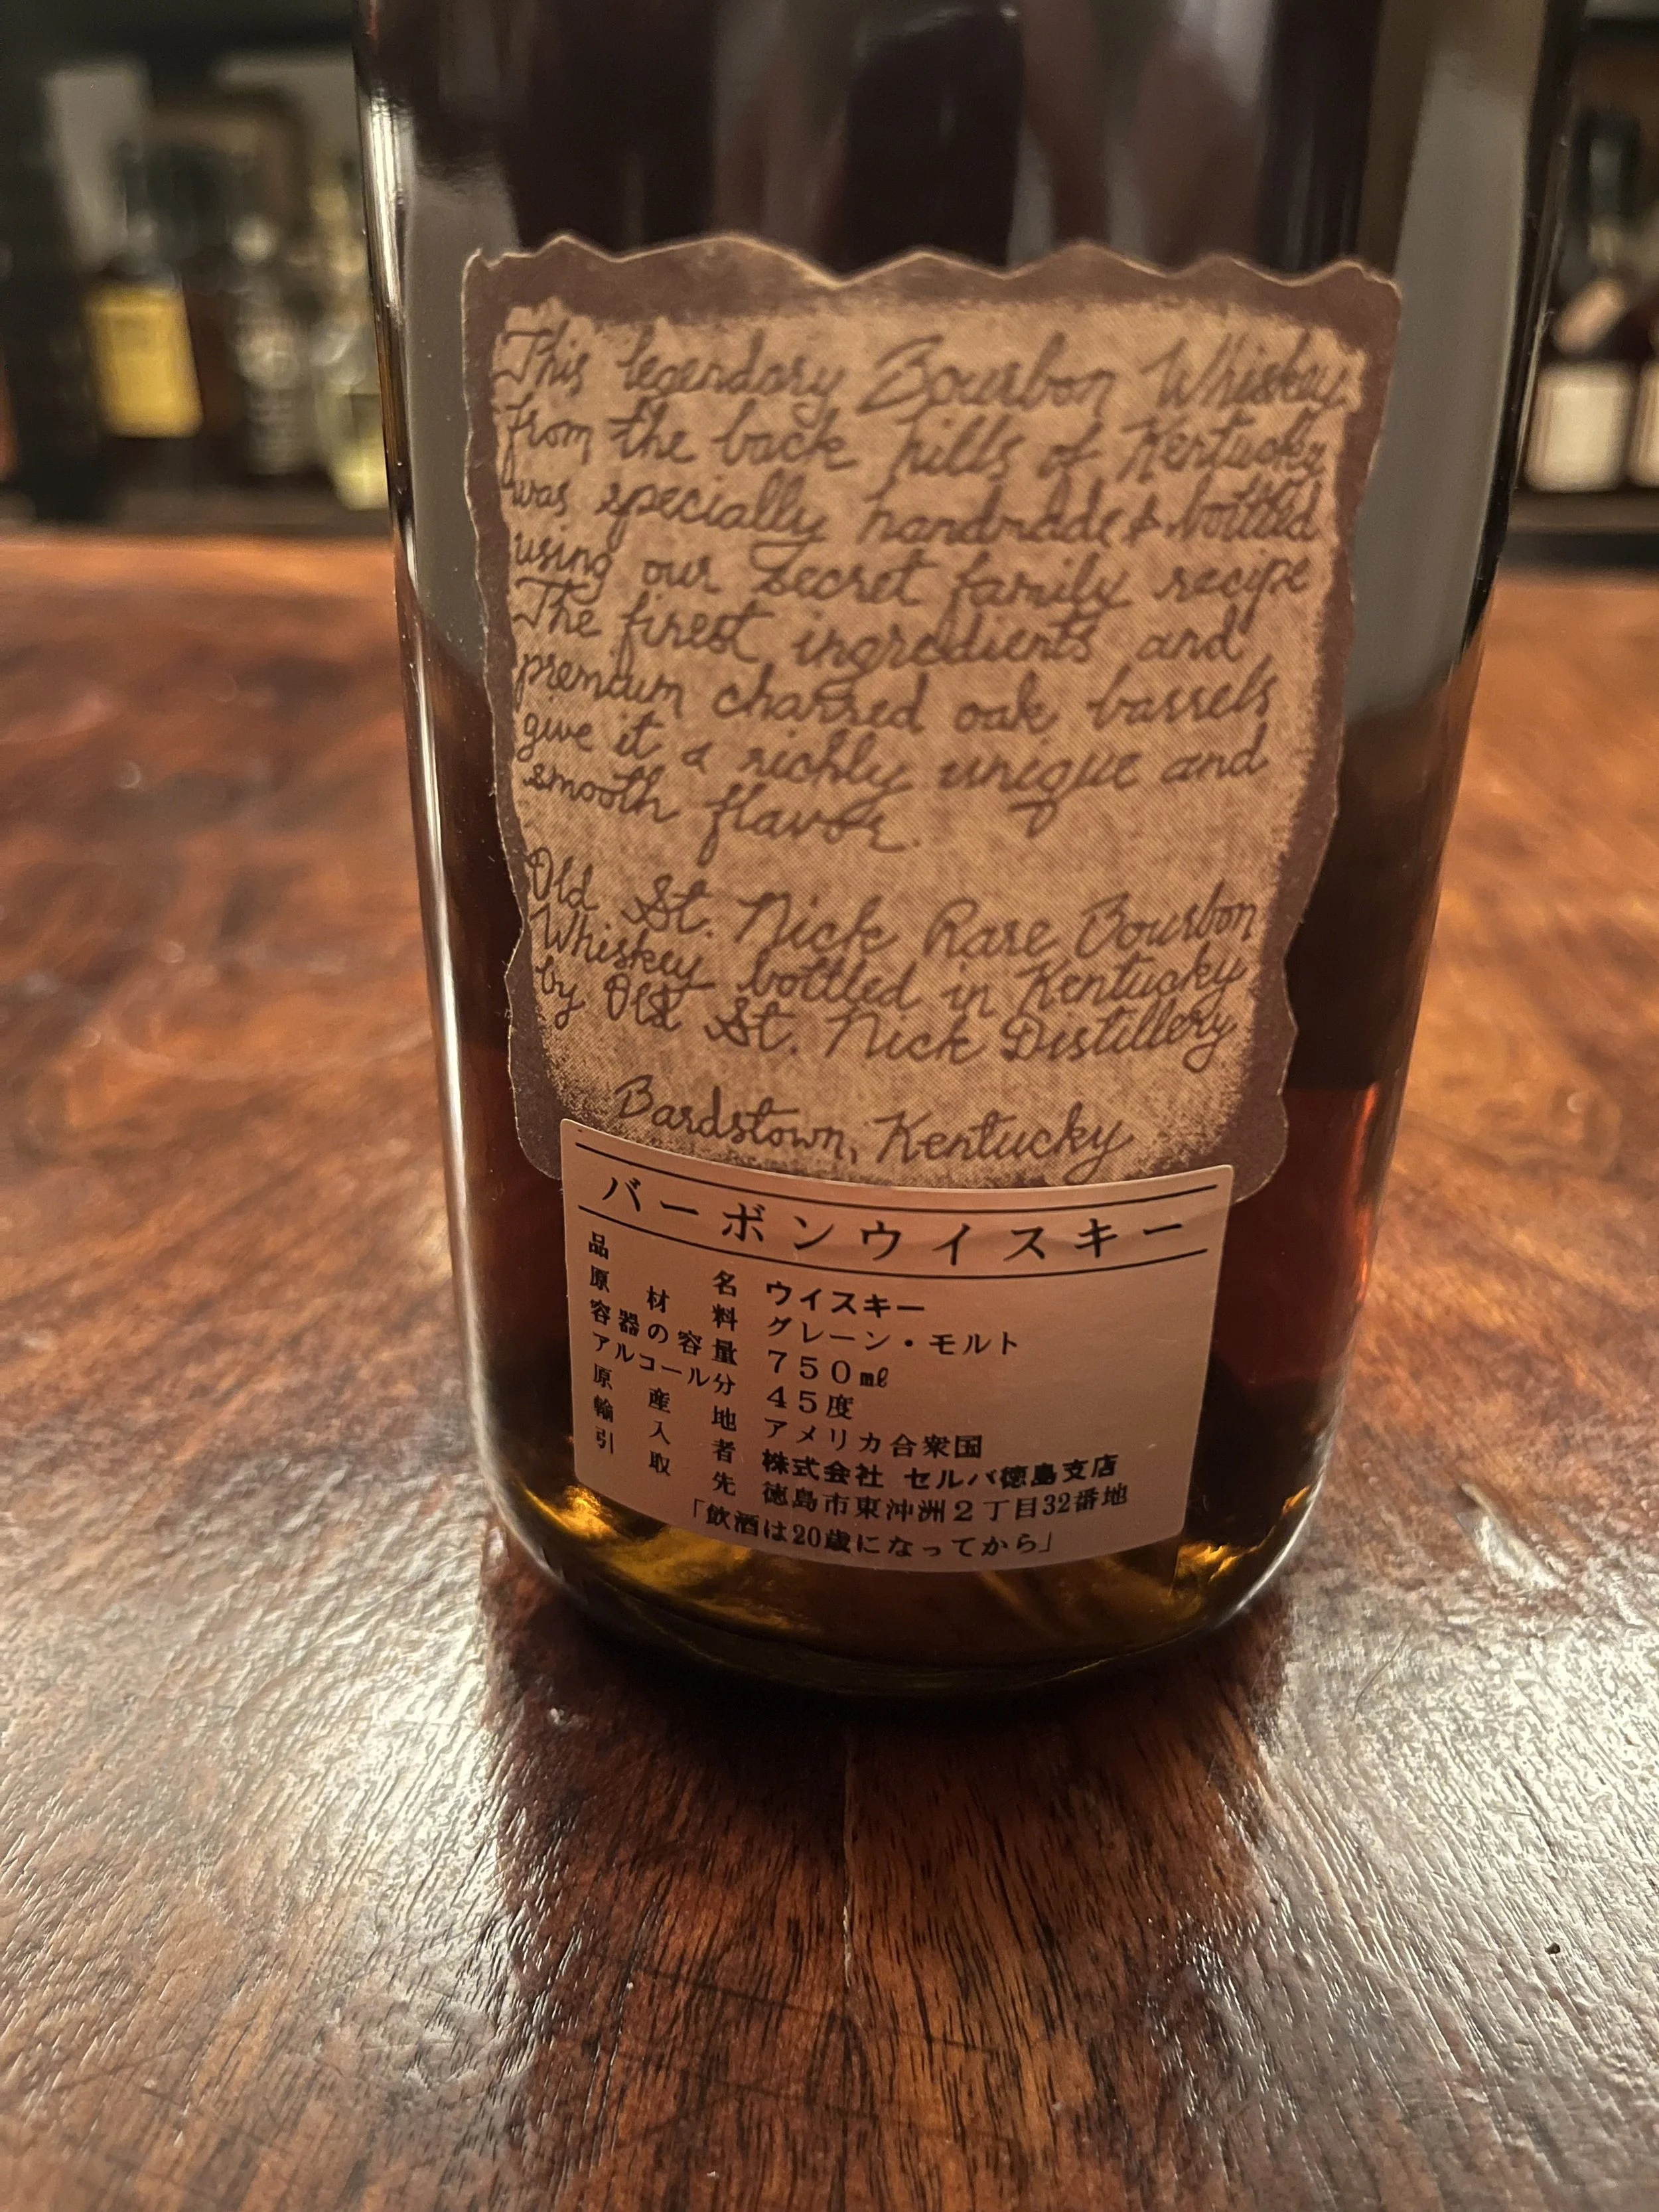 This legendary Bourbon Whiskey
from the back hills of Kentucky
was specially handmade & bottled
using our secret family recipe
The finest ingredients and
premium charred oak barrels
give it a richly unique and
smooth flavor.
Old St. Nick Rare Bourbon
Whiskey bottled in Kentucky
by Old St. Nick Distillery
Bardstown, Kentucky
バーボンウイスキー
品名 ウイスキー
原材料 グレーン・モルト
容器の容量 750㎖
アルコール分 45度
原産地 アメリカ合衆国
輸入者 株式会社 セルバ徳島支店
引取先 徳島市東沖洲2丁目32番地
「飲酒は20歳になってから」